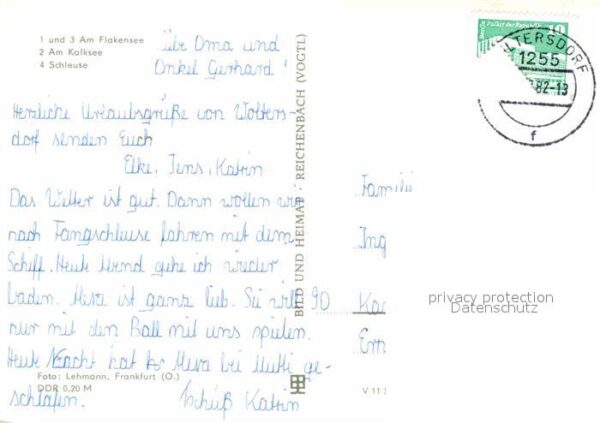 1 und 3 Am Flakensee
2 Am Kalksee
4 Schleuse
Liebe Oma und
Onkel Gerhard!
Herzliche Urlaubsgrüße von Wolters-
dorf senden Euch
Elke, Jens, Katrin
Das Wetter ist gut. Dann wollen wir
nach Fangschleuse fahren mit dem
Schiff. Heute Abend gehe ich wieder
baden. Mexa ist ganz lieb. Sie will
nur mit den Ball mit uns spielen.
Heute Nacht hat Mexa bei Mutti ge-
schlafen. Tschüß Katrin
Foto: Lehmann, Frankfurt (O.)
DDR 0,20 M
BILD UND HEIMAT · REICHENBACH (VOGTL)
V 11
Berlin, Palast der Republik 10
LTERSDORF
1255
82-13
f
Famili
Ing
90
privacy protection
Datenschutz